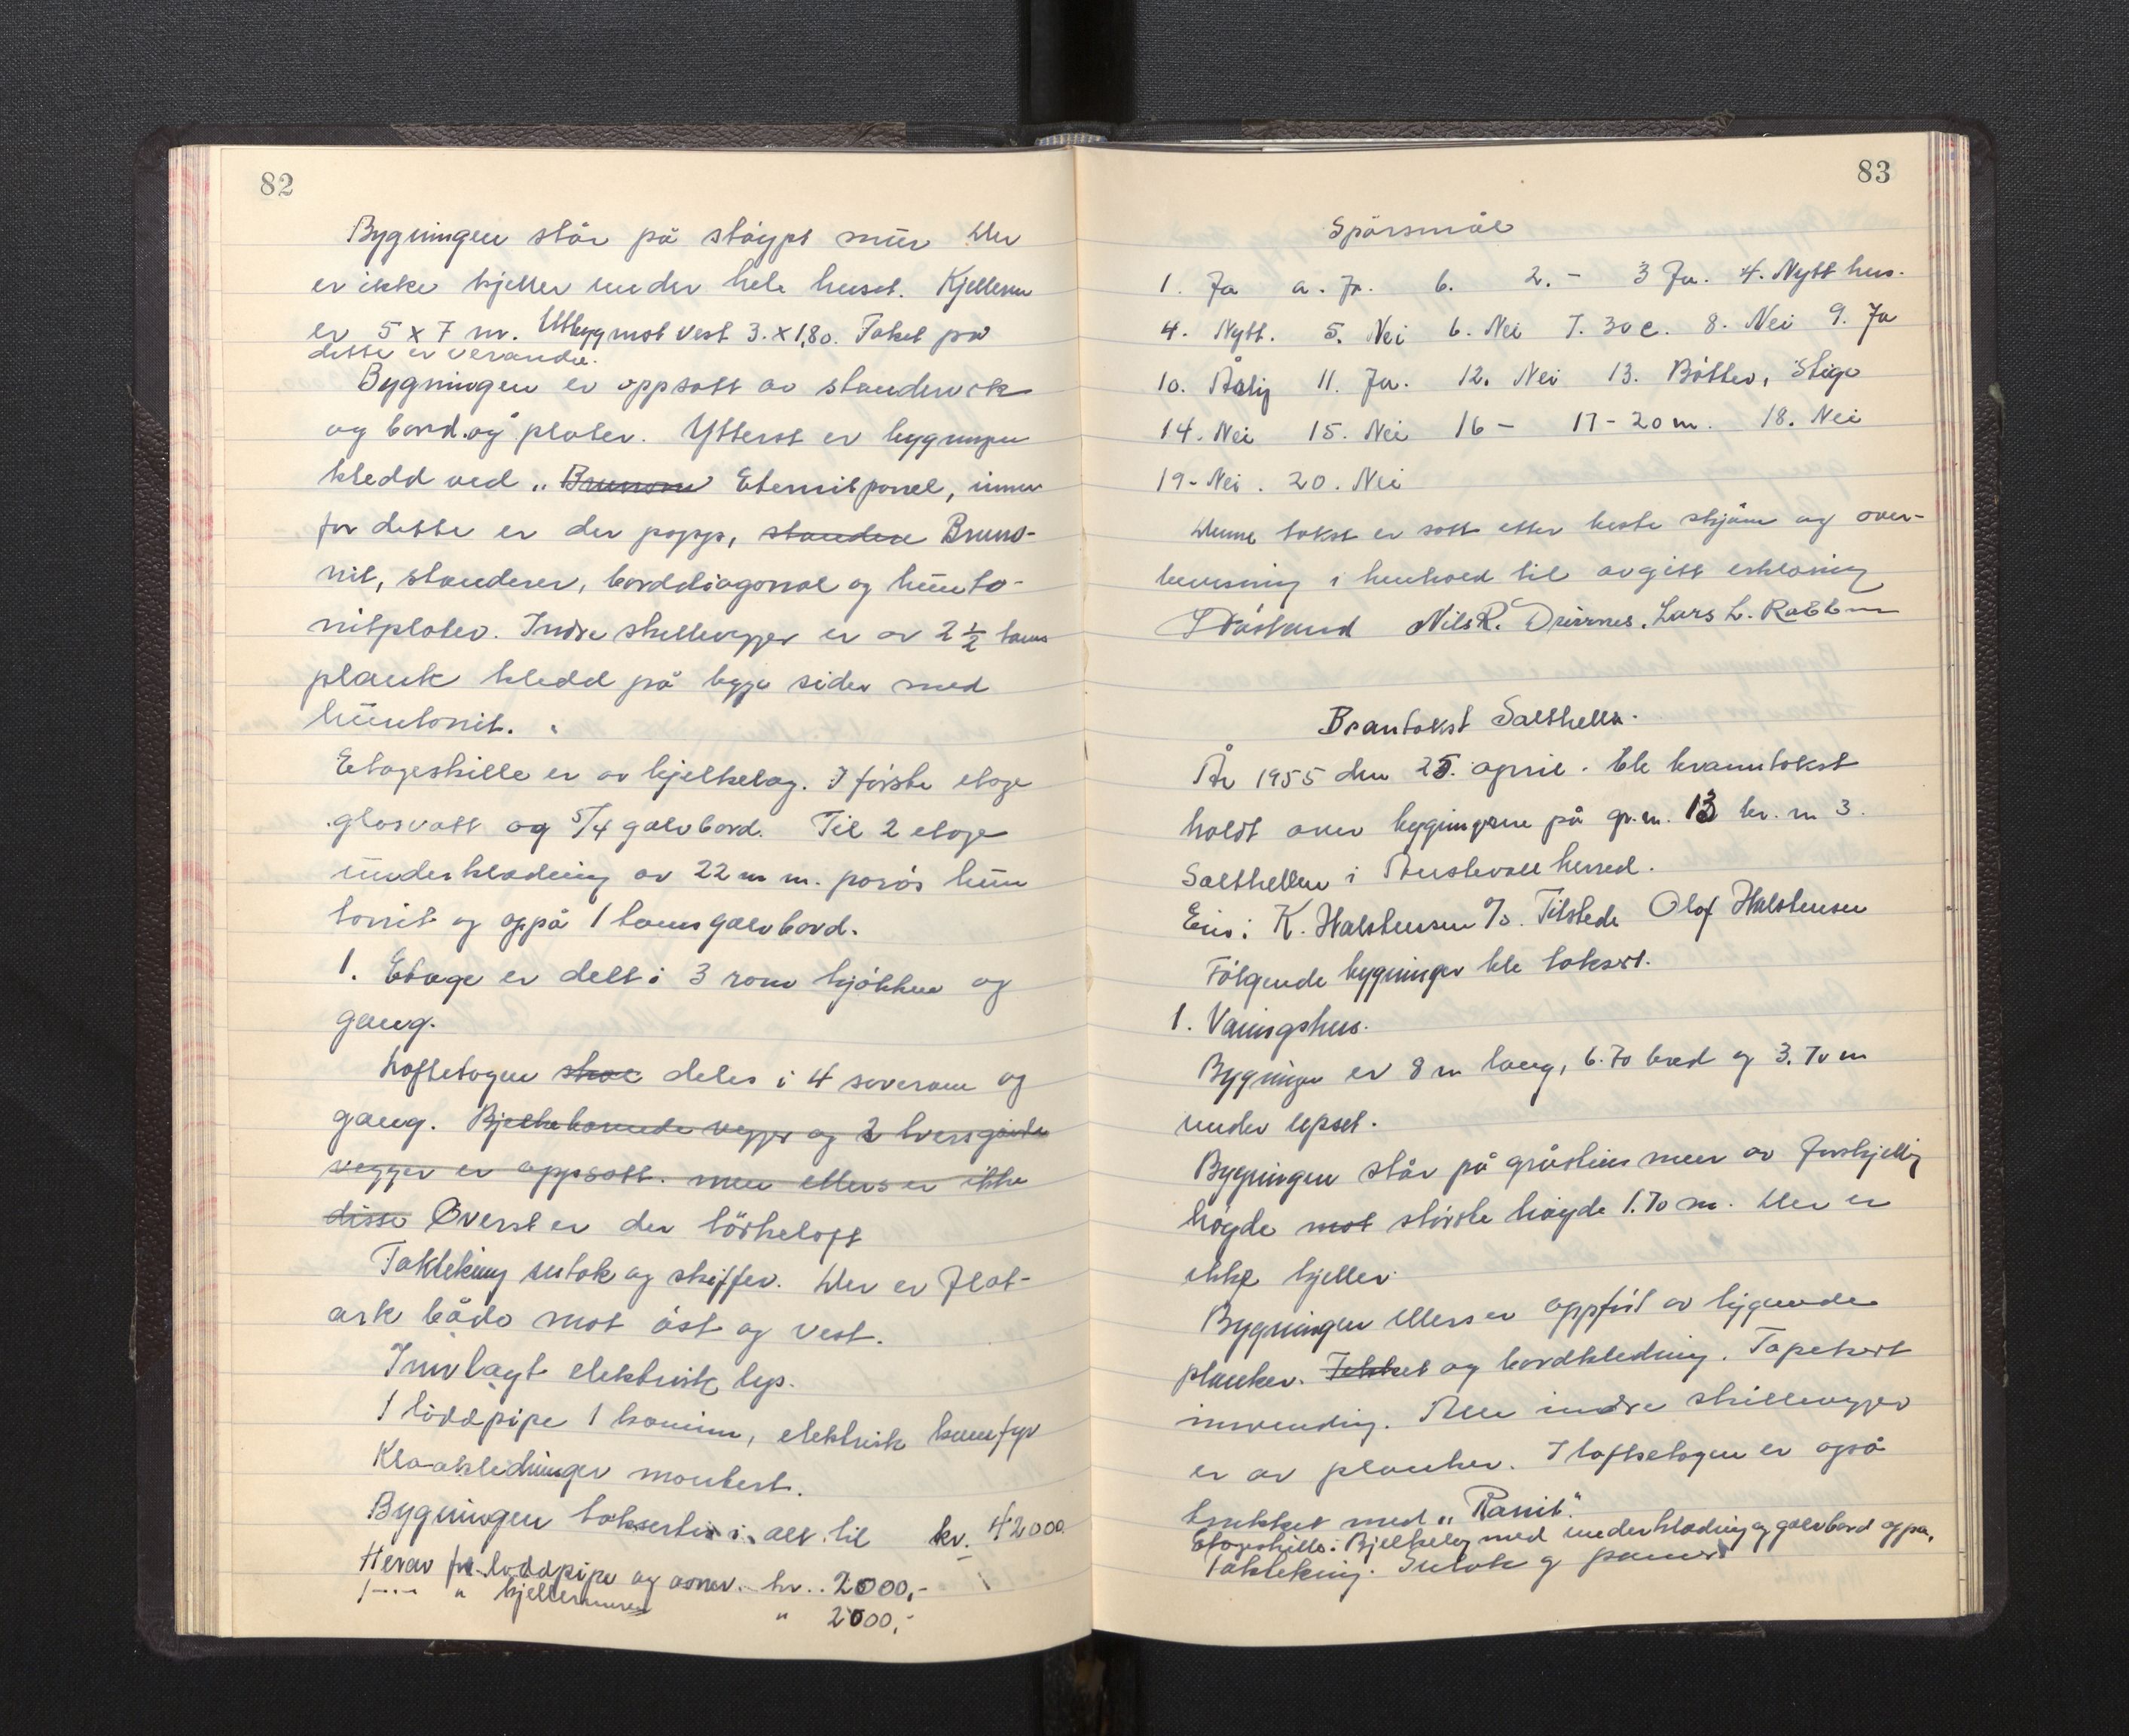 82
Bygningen står på støypt mur Der
er ikke kjeller under hele huset. Kjelleren
er 5 x 7 m. Utbygg mot vest 3. x 1,80. Taket på
dette er veranda.
Bygningen er oppsatt av standerverk
og bord og plater. Ytterst er bygningen
kledd med „ Brunoni Eternitpanel, innen
for dette er der papp, standere Bruno-
nit, standerer, borddiagonal og hunto-
nitplater. Indre skillevegger er av 2 1/2 toms
plank kledd på begge sider med
huntonit.
Etageskille er av bjelkelag. I første etage
glasvatt og 5/4 golvbord. Til 2 etage
underkledning av 22 m m. porøs hun
tonit og oppå 1 toms golvbord.
1. Etage er delt i 3 rom kjøkken og
gang.
Loftetagen skal deles i 4 soverom og
gang. Bjelkebærende vegger og 2 tversgående
vegger er oppsatt. men ellers er ikke
disse Øverst er der tørkeloft
Taktekking sutak og skiffer. Der er Flat-
ark både mot øst og vest.
Innlagt elektrisk lys.
1 løddpipe 1 kamin, elektrisk komfyr
Kloakledninger montert.
Bygningen taksertes i alt til kr. 42000
Herav for løddpipe og ovner. kr. 2000,-
1---- " kjellermuren " 2000,-
83
Spørsmål
1. Ja a. Ja. b. 2. - 3 Ja. 4. Nytt hus.
4. Nytt. 5. Nei 6. Nei 7. 30 c. 8. Nei 9. Ja
10. Årlig 11. Ja. 12. Nei 13. Bøtter, Stige
14. Nei 15. Nei 16 - 17 - 20 m. 18. Nei
19 - Nei. 20. Nei
Denne takst er satt etter beste skjønn og over-
bevisning i henhold til avgitt erklæring
Nils R. Drivnes. Lars L. Rabben
Brantakst Salthella.
År 1955 den 25. april. ble branntakst
holdt over bygningene på gr. n. 13 br. n 3.
Salthellen i Austevoll herred.
Eier: K. Halstensen A/S. Tilstede Olaf Halstensen
Følgende bygninger ble taksert.
1. Våningshus.
Bygningen er 8 m lang, 6.70 bred og 3.70 m
under upset.
Bygningen står på gråsteins mur av forskjellig
høgde mot største høyde 1.70 m. Der er
ikke kjeller.
Bygningen ellers er oppført av liggende
planker. Tekket og bordkledning. Tapetsert
innvendig. Alle indre skillevegger
er av planker. I loftsetagen er også
trukket med „Ranit".
Etageskille: Bjelkelag med underkledning og golvbord oppå.
Taktekking. Sutak og panner